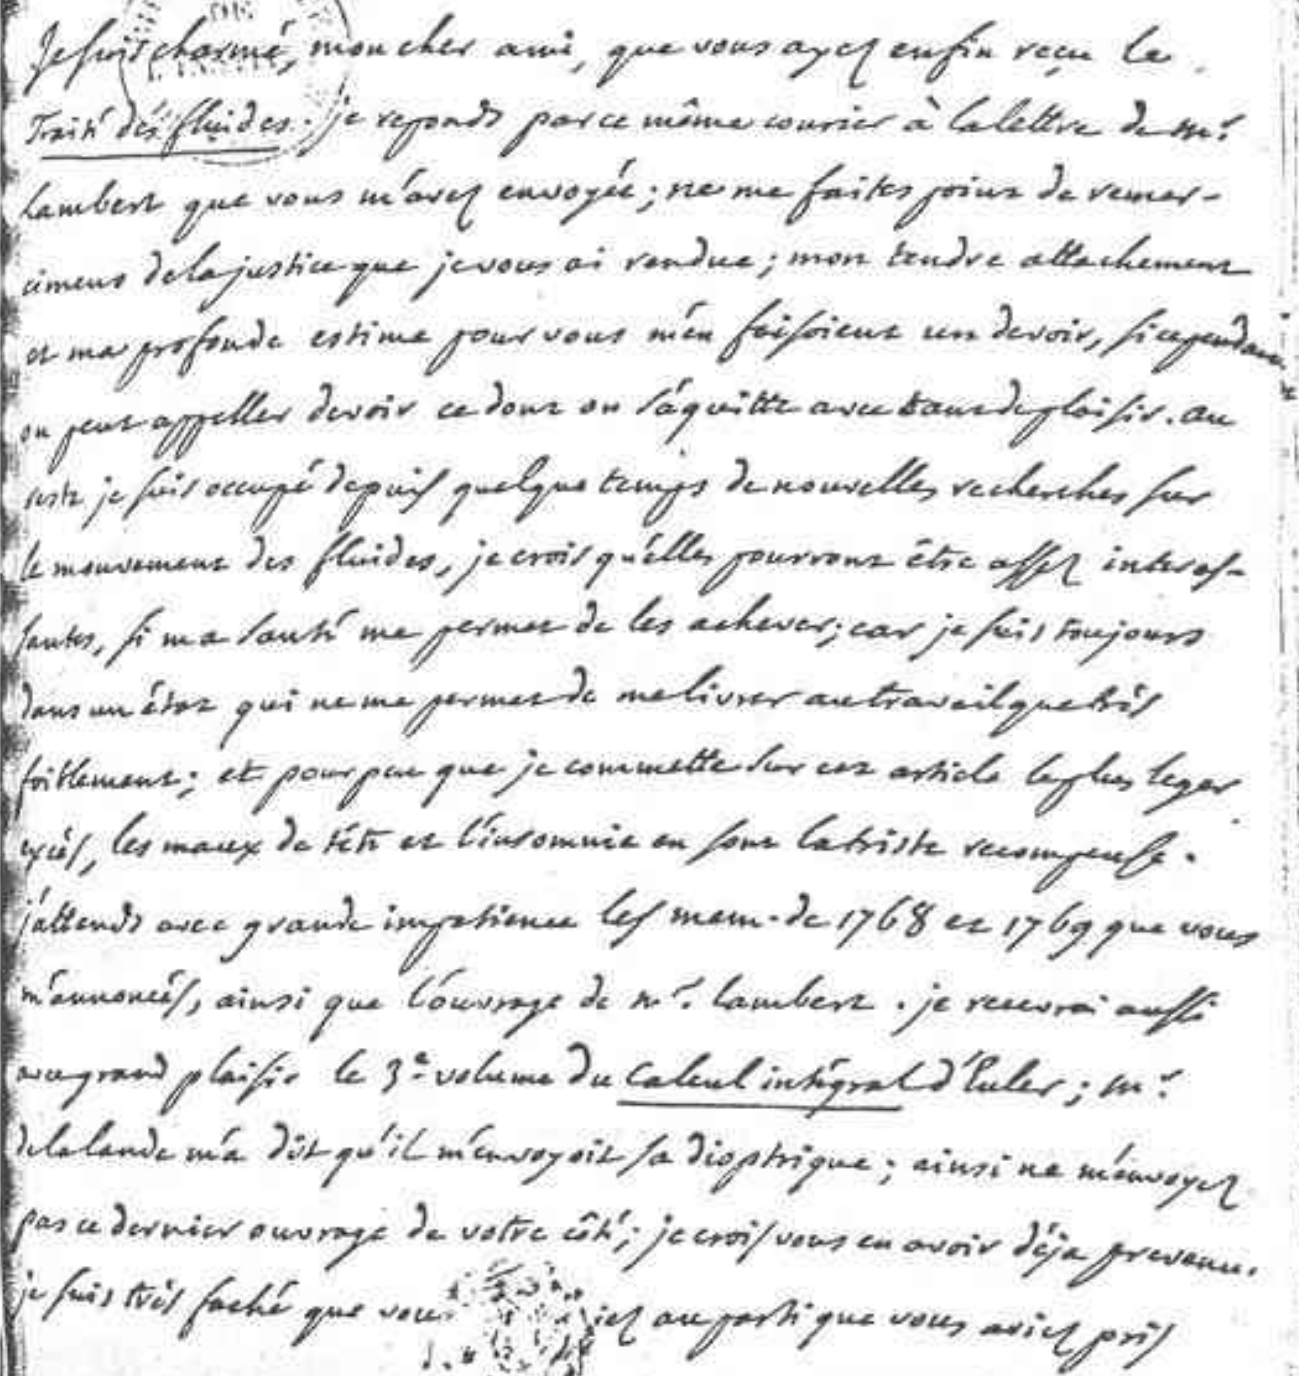 Je suis charmé, mon cher ami, que vous ayez enfin reçu le
Traité des fluides. je reponds par ce même courier à la lettre de Mr.
Lambert que vous m'avez envoyée; ne me faites point de remer-
cimens de la justice que je vous ai rendue; mon tendre attachement
et ma profonde estime pour vous m'en faisoient un devoir, si cependant
on peut appeller devoir ce dont on s'aquitte avec tant de plaisir. au
reste je suis occupé depuis quelque temps de nouvelles recherches sur
le mouvement des fluides, je crois qu'elles pourront être assez interes-
santes, si ma santé me permet de les achever; car je suis toujours
dans un état qui ne me permet de me livrer au travail que très
foiblement; et pour peu que je commette sur cet article le plus leger
excès, les maux de tête et l'insomnie en sont la triste recompense.
j'attends avec grande impatience les mem. de 1768 et 1769 que vous
m'annoncés, ainsi que l'ouvrage de mr. Lambert. je recevrai aussi
avec grand plaisir le 3e. volume du Calcul intégral d'Euler; mr.
de la lande m'a dit qu'il m'envoyoit sa dioptrique; ainsi ne m'envoyez
pas ce dernier ouvrage de votre côté; je crois vous en avoir déja prevenu.
je suis très faché que vous au parti que vous aviez pris